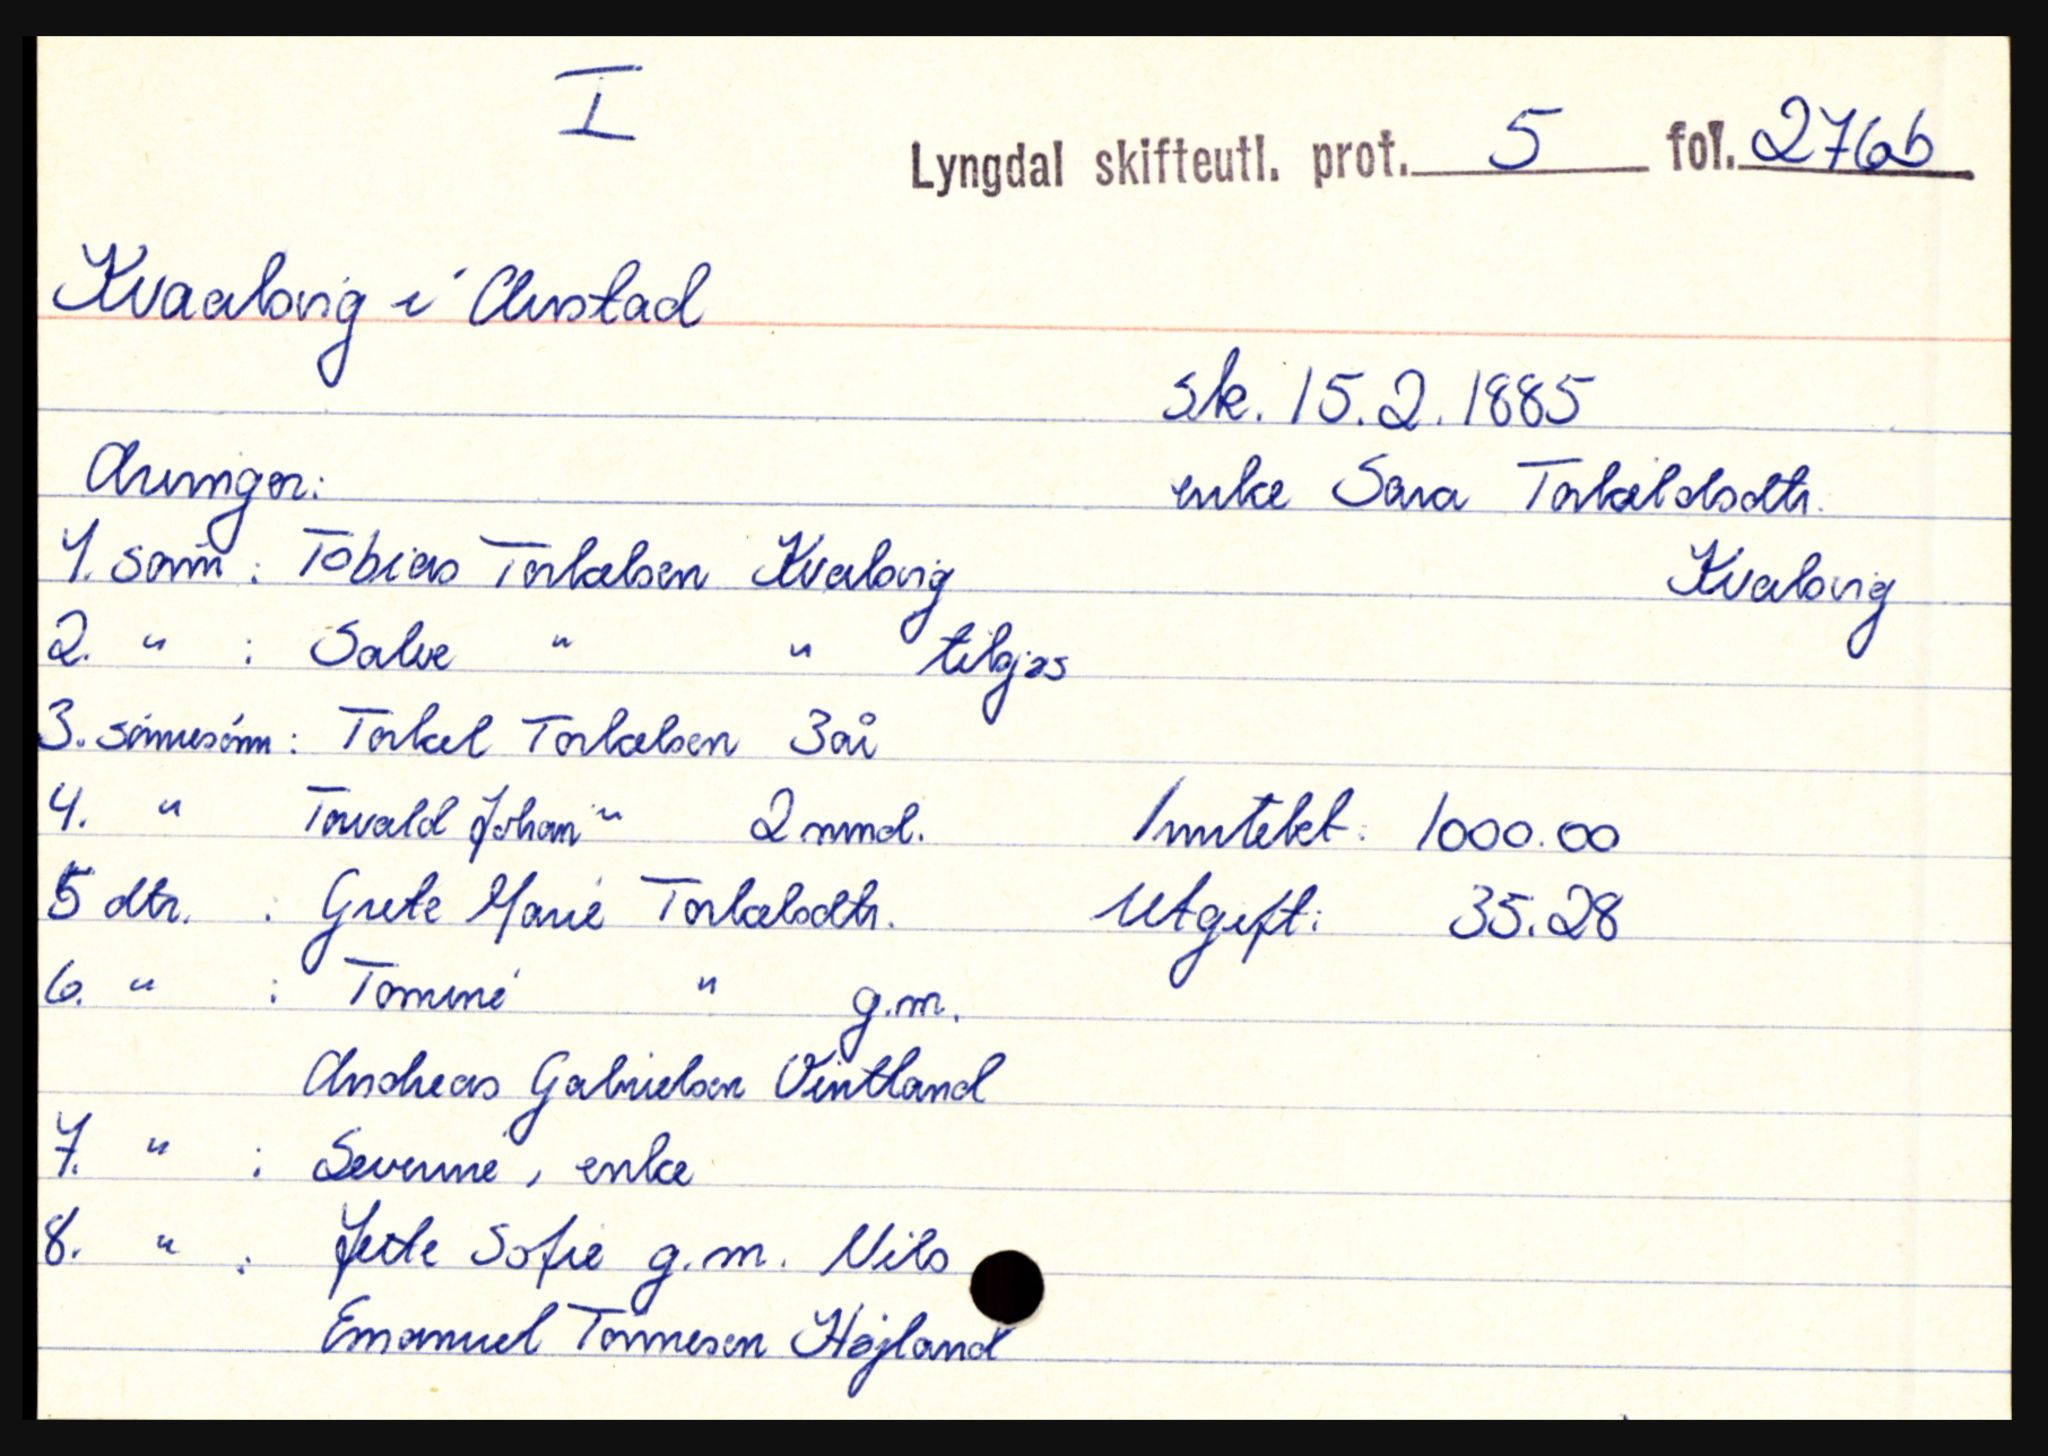 I
Lyngdal skifteutl. prot. 5 fol. 276b
Kvaalsvig i Austad
sk. 15.2.1885
Arvinger:
enke Sara Torkeldsdtr.
Kvalsvig
1. sønn : Tobias Torkelsen Kvalsvig
2. " : Salve " " tilsjøs
3. sønnesønn : Torkel Torkelsen 3 år
4. " Torvald Johan " 2 mnd.
Inntekt: 1000.00
5 dtr. : Grete Marie Torkelsdtr.
Utgift: 35.28
6. " : Tomine " g.m.
Andreas Gabrielsen Vintland
7. " : Severine, enke
8. " : Jette Sofie g.m. Nils
Emanuel Tønnesen Høyland